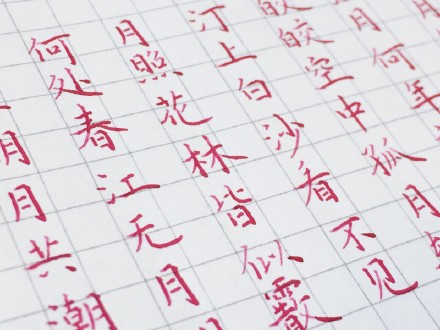 明月共潮
何处春江无月
月照花林皆似霰
汀上白沙看不见
皎皎空中孤月
月何年